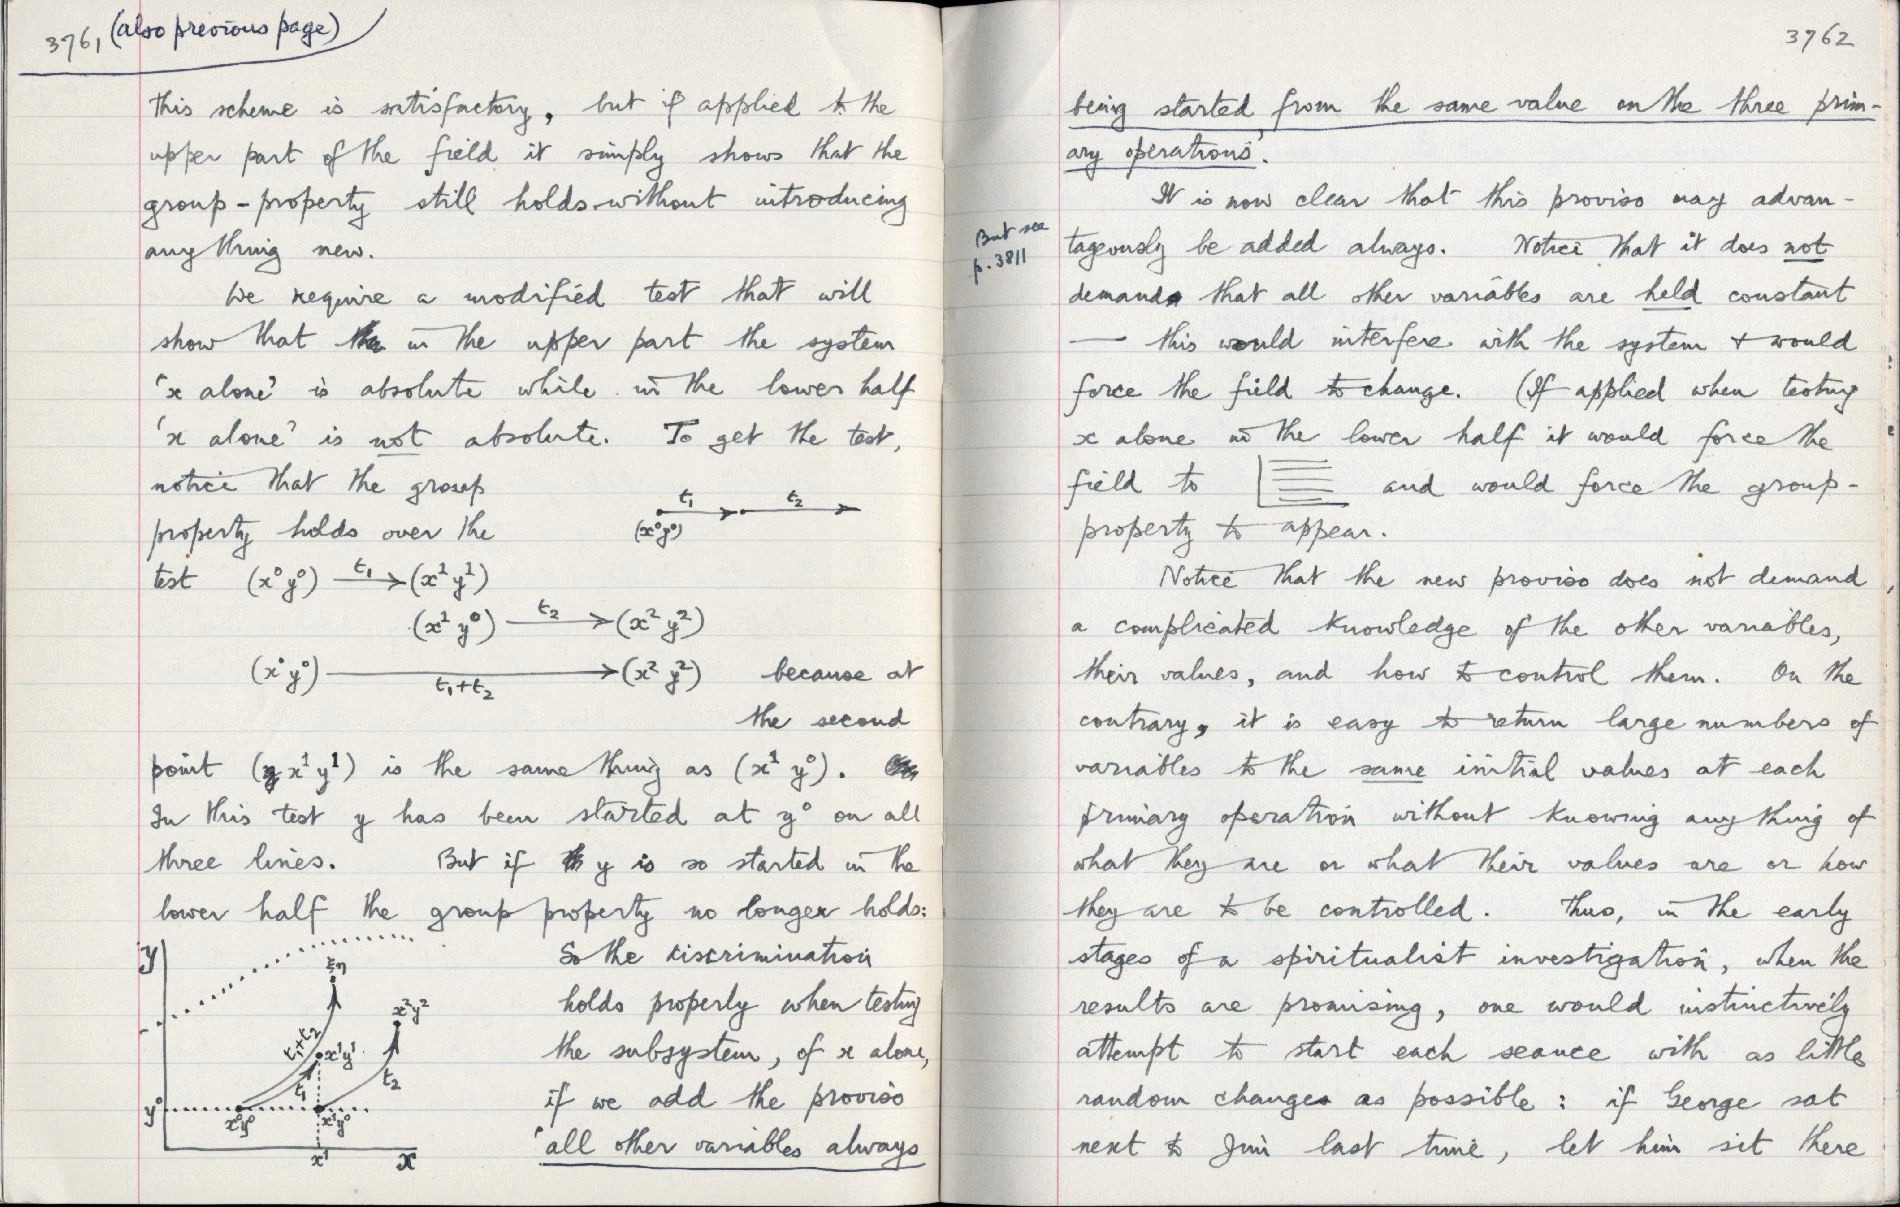 3761 (also previous page)
this scheme is satisfactory, but if applied to the
upper part of the field it simply shows that the
group-property still holds without introducing
anything new.
We require a modified test that will
show that in the upper part the system
'x alone' is absolute while in the lower half
'x alone' is not absolute. To get the test,
notice that the group
property holds over the
t₁ t₂
(x⁰y⁰)
test (x⁰y⁰) t₁→ (x¹y¹)
(x¹y⁰) t₂→ (x²y²)
(x⁰y⁰) t₁+t₂→ (x²y²) because at
the second
point (x¹y¹) is the same thing as (x¹y⁰).
In this test y has been started at y⁰ on all
three lines. But if y is so started in the
lower half the group property no longer holds:
y
ξη
x²y²
t₁+t₂
x¹y¹
t₁
t₂
y⁰
x⁰y⁰
x¹y⁰
x¹
x
So the discrimination
holds properly when testing
the subsystem, of x alone,
if we add the proviso
'all other variables always
3762
being started from the same value on the three prim-
ary operations'.
It is now clear that this proviso may advan-
But see
p.3811
tageously be added always. Notice that it does not
demand that all other variables are held constant
— this would interfere with the system + would
force the field to change. (If applied when testing
x alone in the lower half it would force the
field to and would force the group-
property to appear.
Notice that the new proviso does not demand
a complicated knowledge of the other variables,
their values, and how to control them. On the
contrary, it is easy to return large numbers of
variables to the same initial values at each
primary operation without knowing anything of
what they are or what their values are or how
they are to be controlled. Thus, in the early
stages of a spiritualist investigation, when the
results are promising, one would instinctively
attempt to start each seance with as little
random changes as possible: if George sat
next to Jim last time, let him sit there